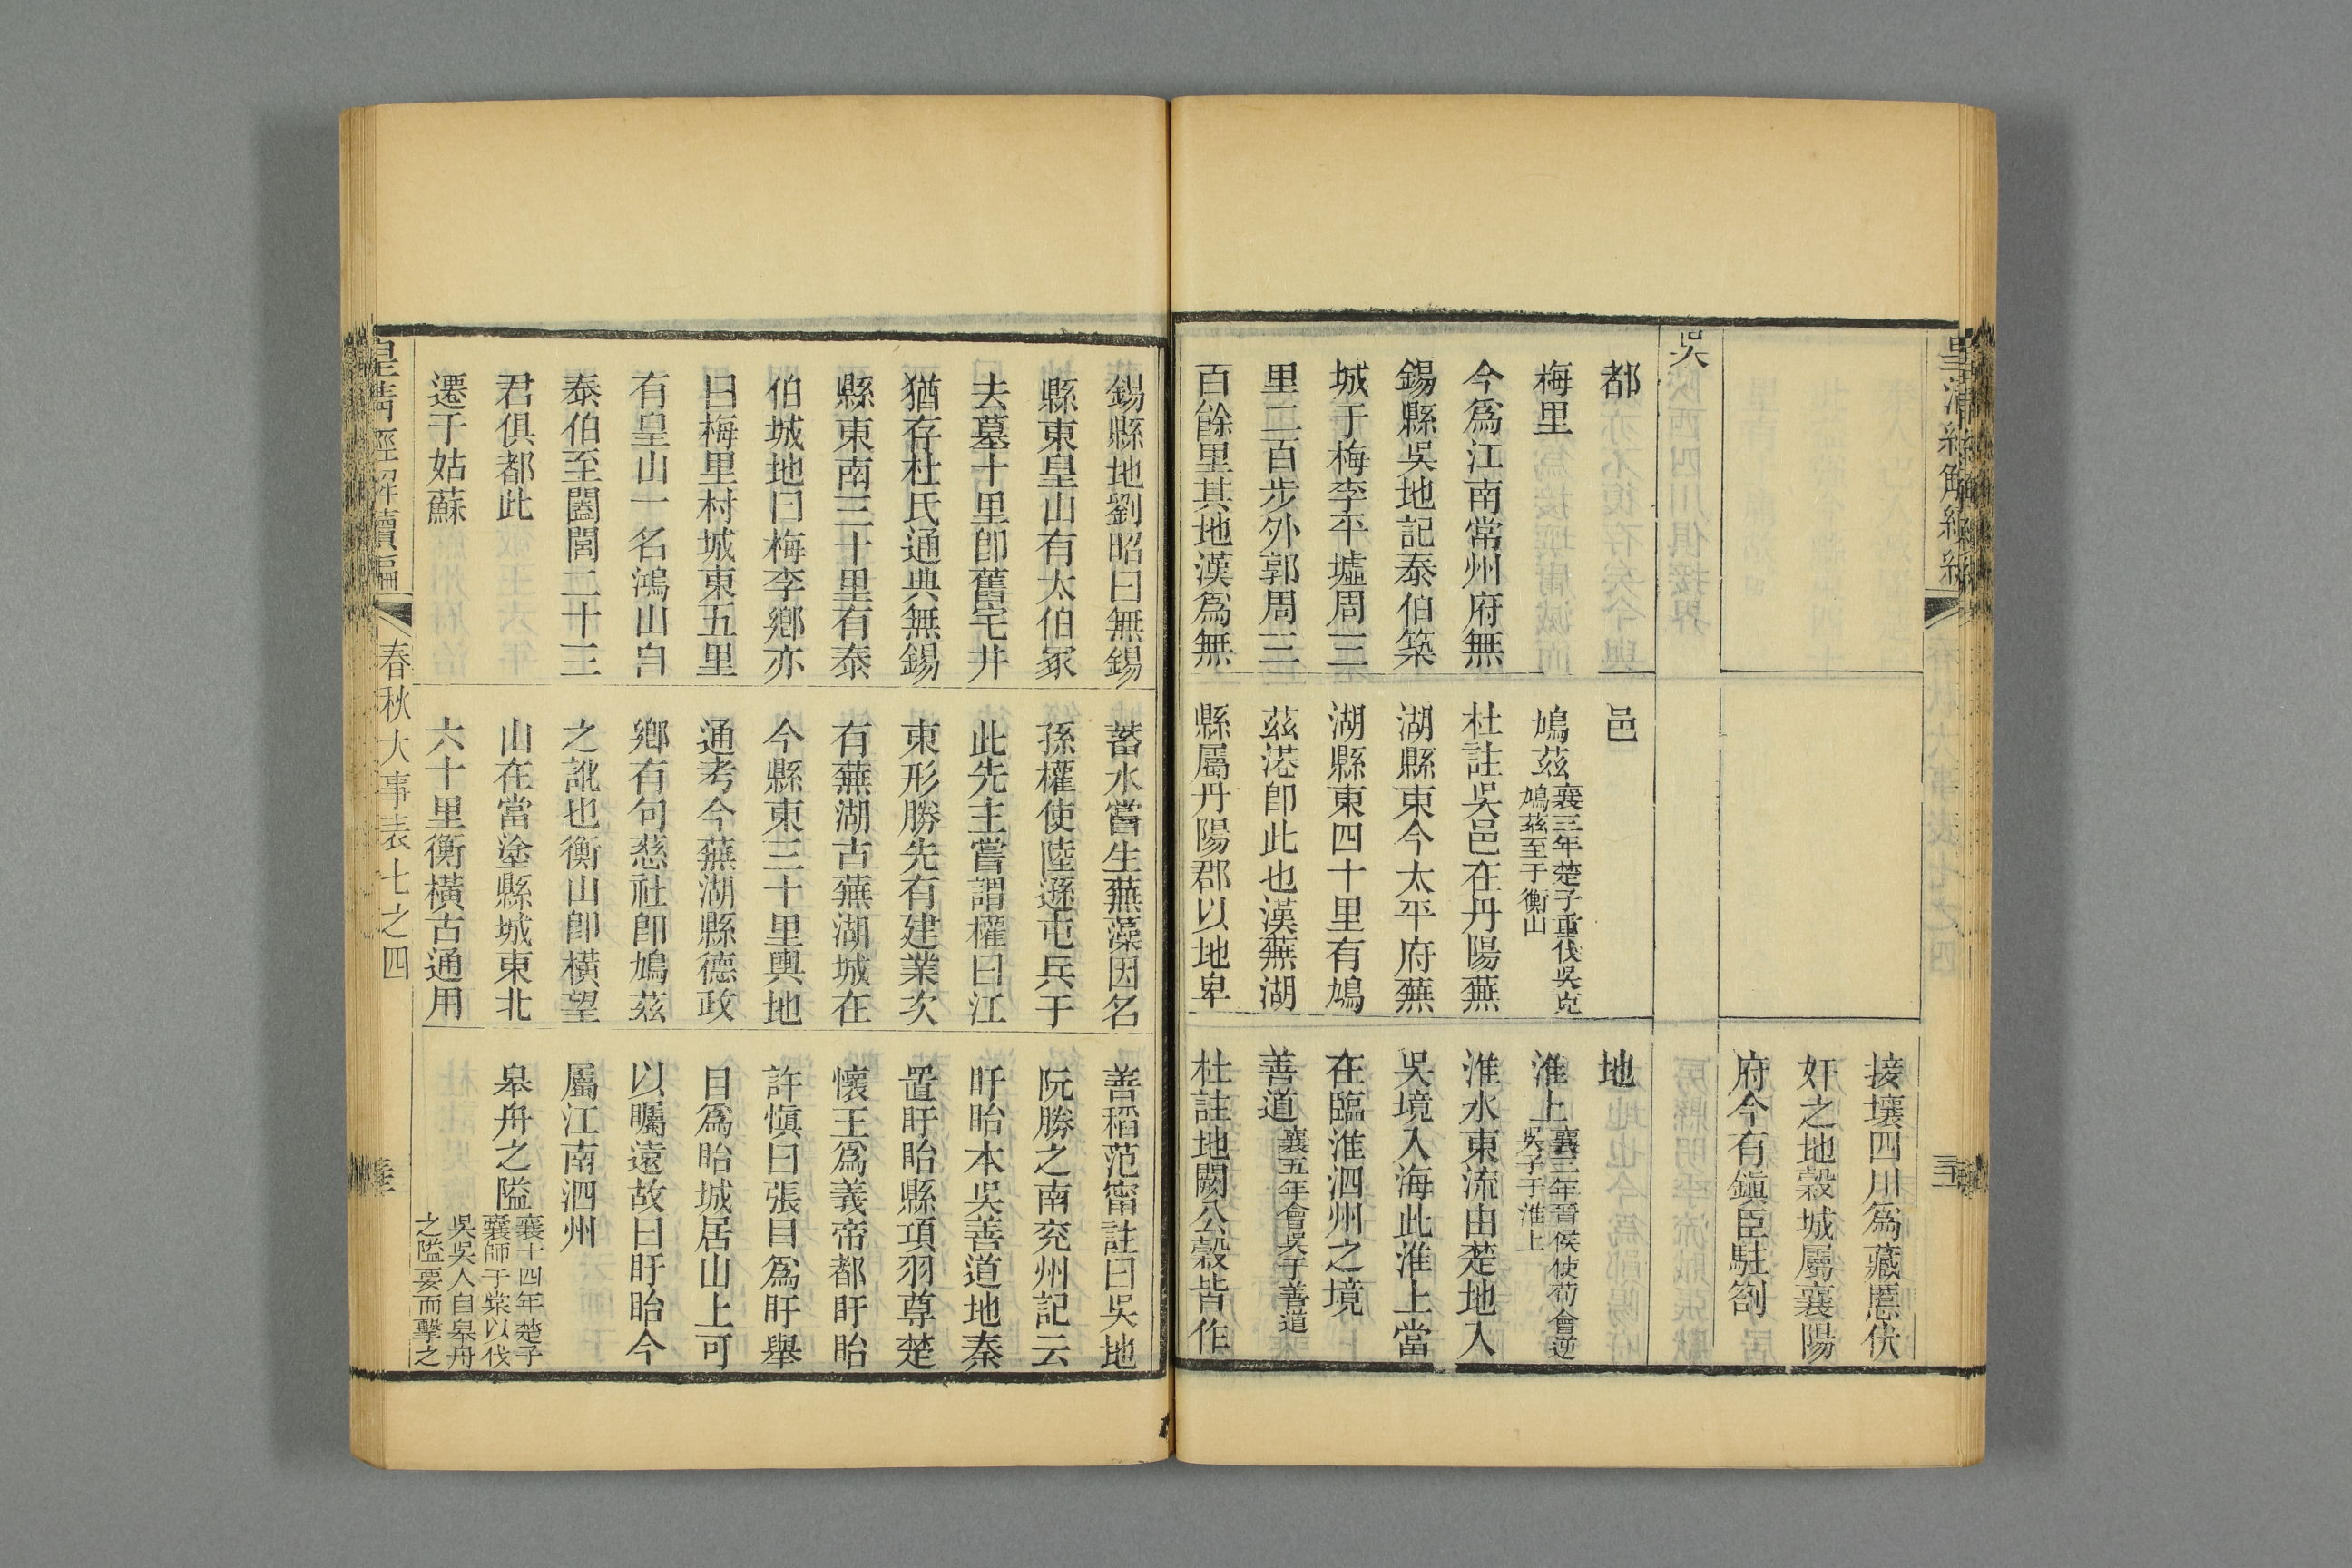 接壤四川爲藏慝伏
奸之地穀城屬襄陽
府今有鎮臣駐劄
吳
都
梅里
今爲江南常州府無
錫縣吳地記泰伯築
城于梅李平墟周三
里二百步外郭周三
百餘里其地漢爲無
邑
鳩茲襄三年楚子重伐吳克
鳩茲至于衡山
杜註吳邑在丹陽蕪
湖縣東今太平府蕪
湖縣東四十里有鳩
茲港即此也漢蕪湖
縣屬丹陽郡以地卑
地
淮上襄三年晉侯使荀會逆
吳子于淮上
淮水東流由楚地入
吳境入海此淮上當
在臨淮泗州之境
善道襄五年會吳于善道
杜註地闕公穀皆作
錫縣地劉昭曰無錫
縣東皇山有太伯冢
去墓十里卽舊宅井
猶存杜氏通典無錫
縣東南三十里有泰
伯城地曰梅李鄉亦
曰梅里村城東五里
有皇山一名鴻山自
泰伯至闔閭二十三
君俱都此
遷于姑蘇
蓄水嘗生蕪藻因名
孫權使陸遜屯兵于
此先主嘗謂權曰江
東形勝先有建業次
有蕪湖古蕪湖城在
今縣東三十里輿地
通考今蕪湖縣德政
鄉有句慈社卽鳩茲
之訛也衡山卽橫望
山在當塗縣城東北
六十里衡橫古通用
善稻范甯註曰吳地
阮勝之南兖州記云
盱眙本吳善道地秦
置盱眙縣項羽尊楚
懷王爲義帝都盱眙
許愼曰張目爲盱舉
目爲眙城居山上可
以矚遠故曰盱眙今
屬江南泗州
皋舟之隘襄十四年楚子
囊師于棠以伐
吳吳人自皋舟
之隘要而擊之
皇清經解續編
春秋大事表七之四